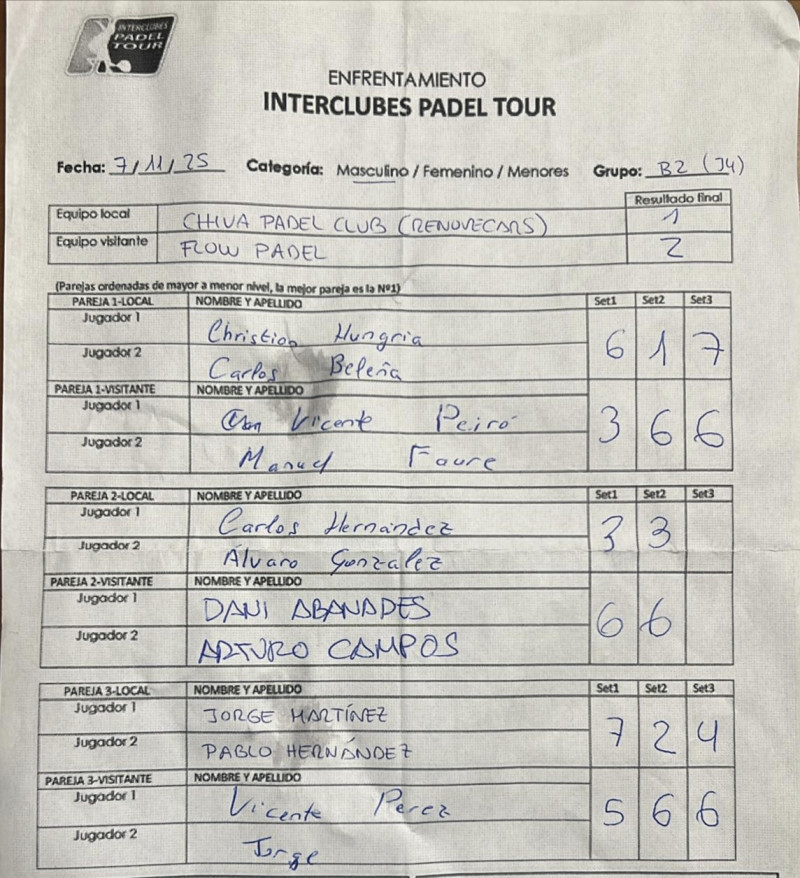 INTERCLUBES
PADEL
TOUR
ENFRENTAMIENTO
INTERCLUBES PADEL TOUR
Fecha: 7/11/25 Categoría: Masculino / Femenino / Menores Grupo: B2 (J4)
Resultado final
Equipo local CHIVA PADEL CLUB (RENOVECARS) 1
Equipo visitante FLOW PADEL 2
(Parejas ordenadas de mayor a menor nivel, la mejor pareja es la Nº1)
PAREJA 1-LOCAL NOMBRE Y APELLIDO Set1 Set2 Set3
Jugador 1 Christian Hungria
6 1 7
Jugador 2 Carlos Beleña
PAREJA 1-VISITANTE NOMBRE Y APELLIDO
Jugador 1 Vicente Peiró
3 6 6
Jugador 2 Manuel Faure
PAREJA 2-LOCAL NOMBRE Y APELLIDO Set1 Set2 Set3
Jugador 1 Carlos Hernández
3 3
Jugador 2 Álvaro Gonzalez
PAREJA 2-VISITANTE NOMBRE Y APELLIDO
Jugador 1 DANI ABANADES
6 6
Jugador 2 ARTURO CAMPOS
PAREJA 3-LOCAL NOMBRE Y APELLIDO Set1 Set2 Set3
Jugador 1 JORGE MARTÍNEZ
7 2 4
Jugador 2 PABLO HERNÁNDEZ
PAREJA 3-VISITANTE NOMBRE Y APELLIDO
Jugador 1 Vicente Perez
5 6 6
Jugador 2 Jorge